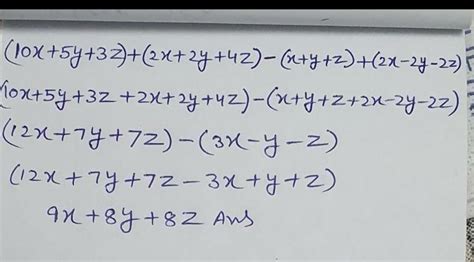 (10x+5y+3z)+(2x+2y+4z)-(x+y+z)+(2x-2y-2z)
(10x+5y+3z+2x+2y+4z)-(x+y+z+2x-2y-2z)
(12x+7y+7z)-(3x-y-z)
(12x+7y+7z-3x+y+z)
9x+8y+8z Ans